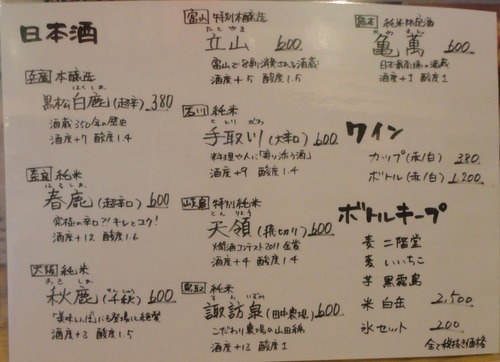 日本酒
兵庫 本醸造
はくしか
黒松白鹿(超辛) 380
酒蔵350年の歴史
酒度+7 酸度1.4
奈良 純米
はるしか
春鹿(超辛口) 600
究極の辛口?!キレとコク!
酒度+12 酸度1.6
大阪 純米
あきしか
秋鹿(千秋) 600
「美味しんぼ」にも登場した絶賛
酒度+3 酸度1.5
富山 特別本醸造
たてやま
立山 600
富山で8割消費される酒蔵
酒度+5 酸度1.5
石川 純米
てどりがわ
手取川(大辛口) 600
料理や人に「寄り添う酒」
酒度+9 酸度1.4
岐阜 特別純米
てんりょう
天領(飛切り) 600
燗酒コンテスト2011金賞
酒度+4 酸度1.4
鳥取 純米
すわいずみ
諏訪泉(田中農場) 600
こだわり農場の山田錦
酒度+13 酸度1
熊本 純米吟醸酒
亀萬 600
日本最南端の酒蔵
酒度+1 酸度1
ワイン
カップ(赤/白) 380
ボトル(赤/白) 1,200
ボトルキープ
麦 二階堂
麦 いいちこ
芋 黒霧島
米 白岳 2,500
氷セット 200
全て税抜き価格